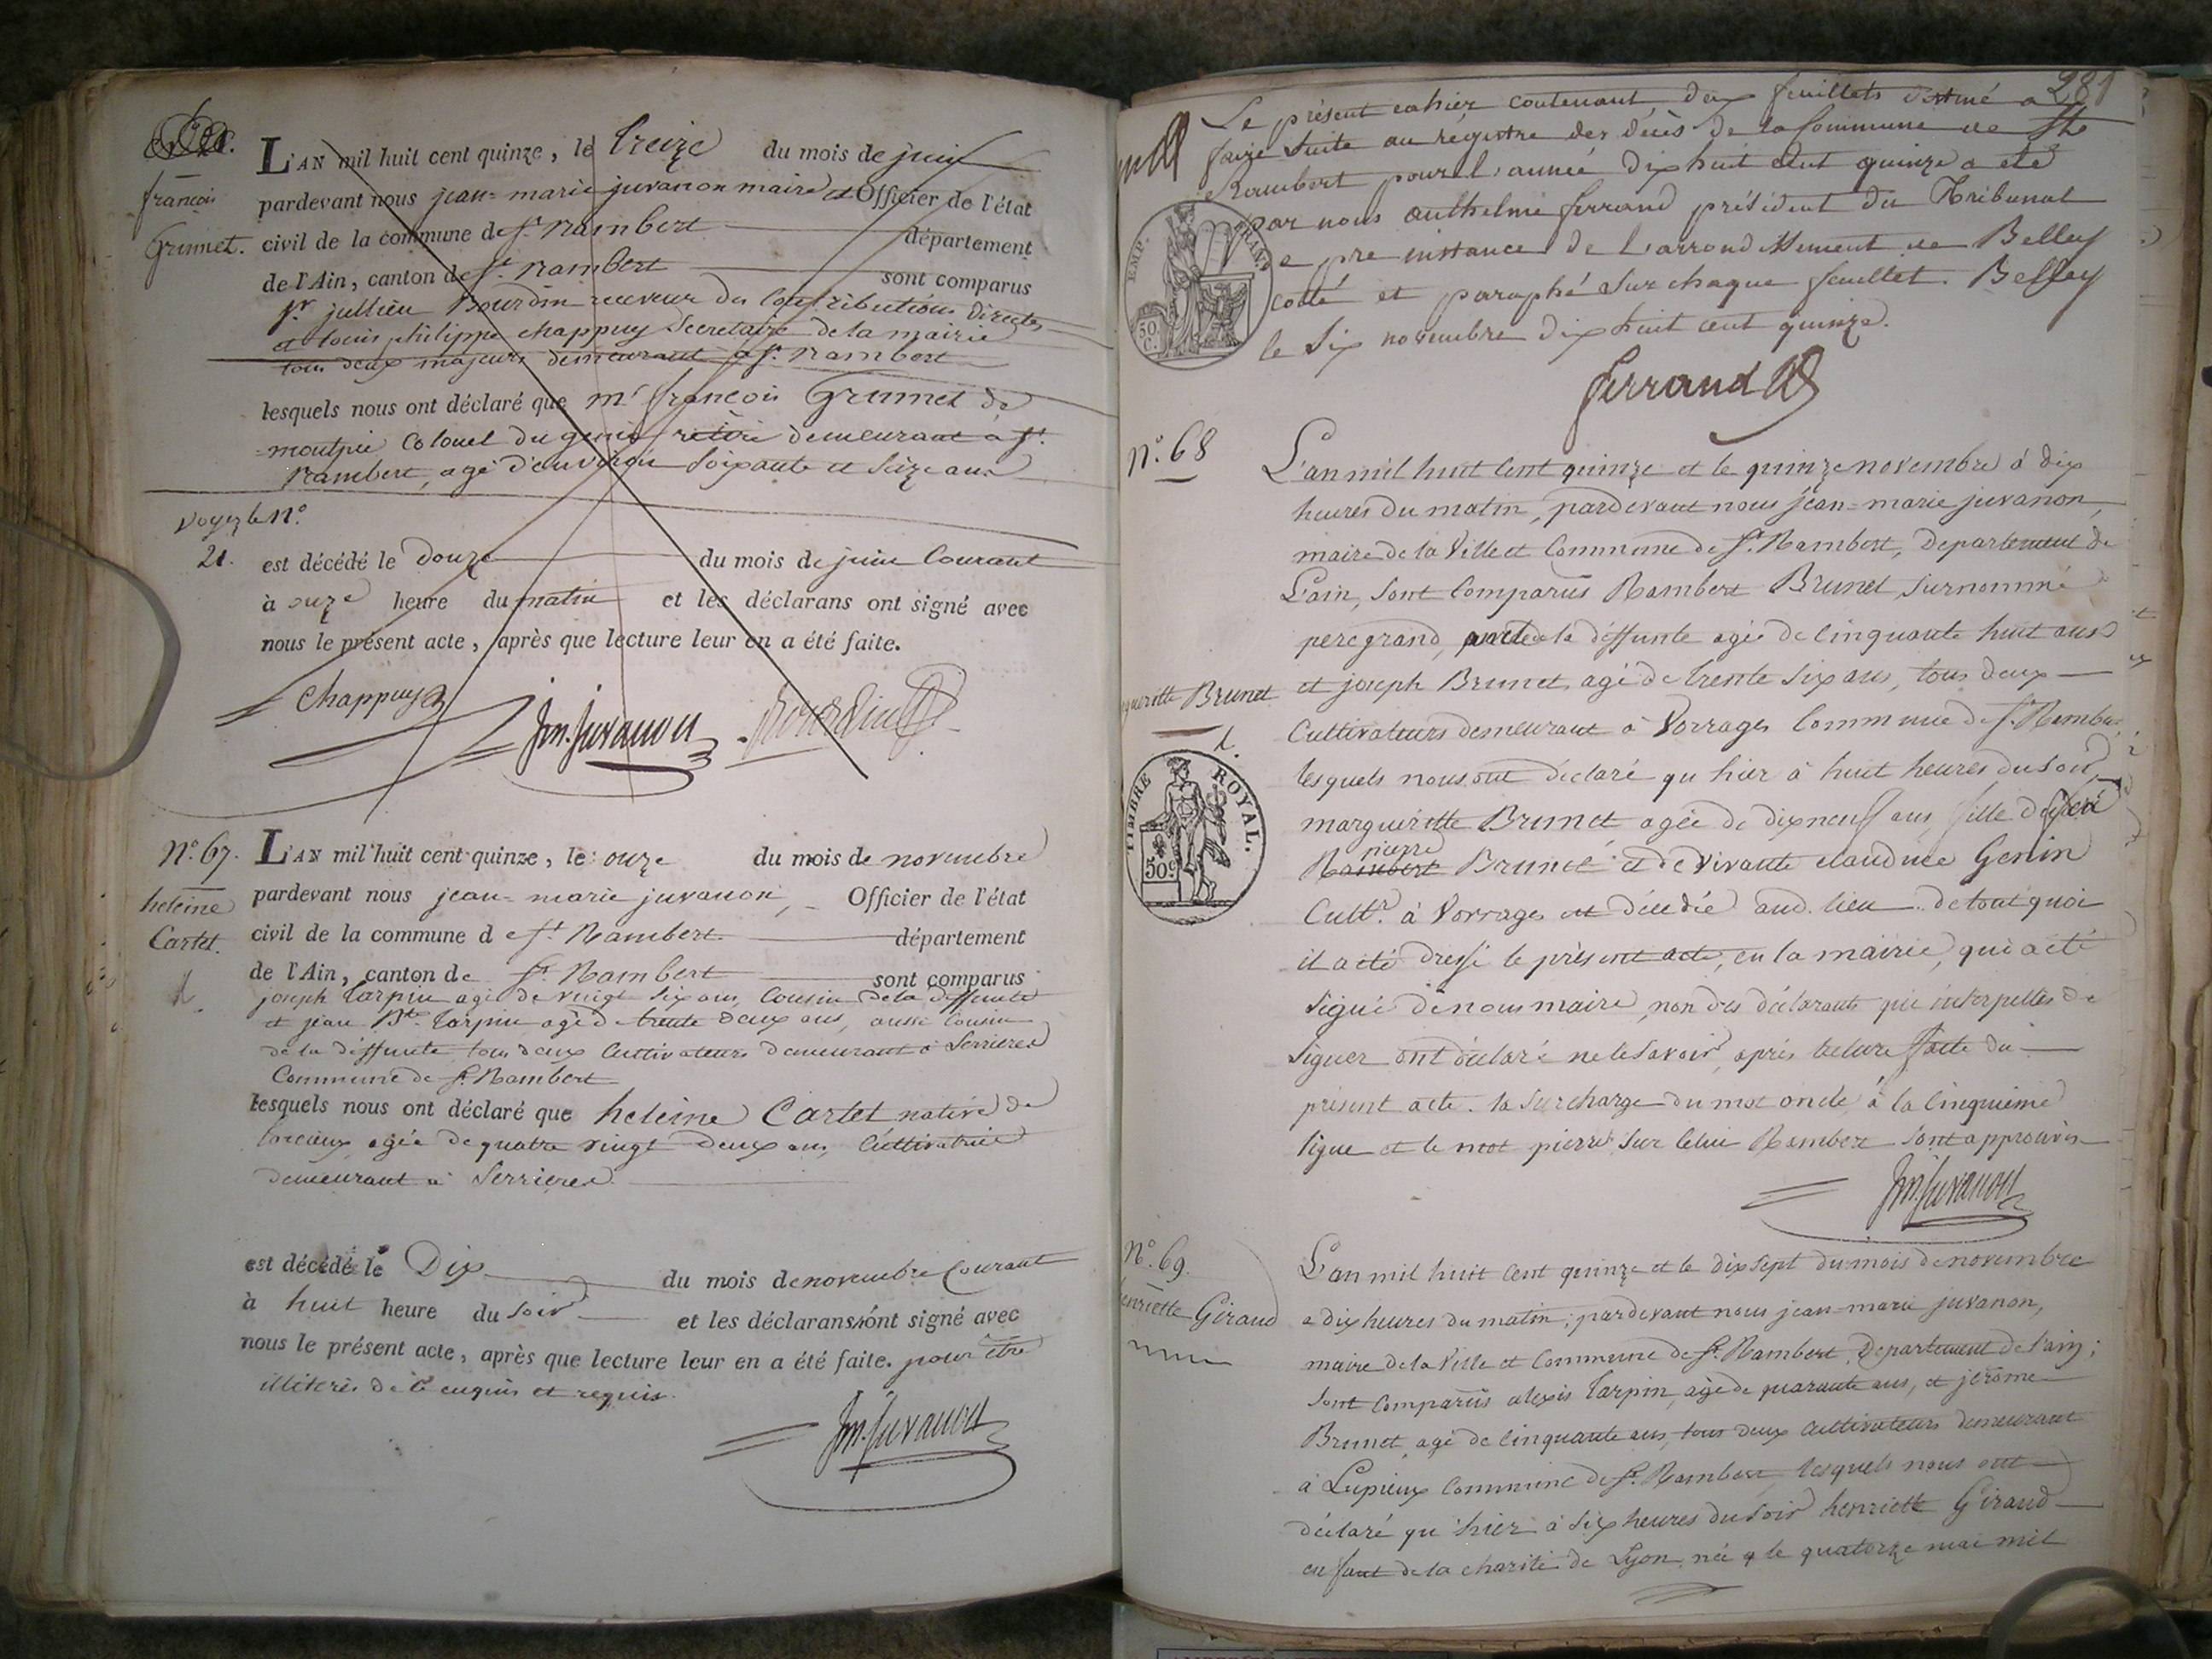 françois
Grumet.
L'AN mil huit cent quinze, le treize du mois de juin
pardevant nous jean=marie juvanon maire et Officier de l'état
civil de la commune de St. rambert département
de l'Ain, canton de St. rambert sont comparus
Sr. jullien Bourdin receveur des Contributions directes
et louis philippe chappuy Secretaire de la mairie
tous deux majeurs demeurant a St. rambert
lesquels nous ont déclaré que mr françois Grumet de
=montpié Colonel du genie retiré demeurant à St.
Rambert, agé d'environ soixante et seize ans
Voyez le N.°
21.
est décédé le douze du mois de juin Courant
à onze heure du matin et les déclarans ont signé avec
nous le présent acte, après que lecture leur en a été faite.
Chappuy Jm. Juvanon Bourdin
N.° 67.
heleine
Cartet.
L'AN mil huit cent quinze, le onze du mois de novembre
pardevant nous jean=marie juvanon, Officier de l'état
civil de la commune de St. Rambert département
de l'Ain, canton de St. Rambert sont comparus
joseph tarpin agé de vingt six ans, Cousin de la deffunte
et jean Bte. tarpin agé de trente deux ans, aussi Cousin
de la deffunte, tous deux Cultivateurs demeurant à Serrieres
Commune de St. Rambert
lesquels nous ont déclaré que heleine Cartet native de
torcieux agée de quatre vingt deux ans, Cultivatrice
demeurant à Serrieres
est décédé le Dix du mois de novembre Courant
à huit heure du soir et les déclarans n'ont signé avec
nous le présent acte, après que lecture leur en a été faite. pour être
illiterés de ce enquis et requis.
Jm. Juvanon
281
Le présent cahier contenant deux feuillets destiné a
faire Suite au régistre des décès de la Commune de St
Rambert pour l'année dix huit cent quinze a été
par nous anthelme ferrand président du Tribunal
de pre instance de l'arrondissement de Belley
cotté et paraphé Sur chaque feuillet. Belley
le Six novembre dix huit cent quinze.
ferrand
EMP. FRAN.
50 C.
N.° 68
L'an mil huit Cent quinze et le quinze novembre à dix
heures du matin, pardevant nous jean=marie juvanon,
maire de la Ville et Commune de St. Rambert, Departement de
L'ain, sont Comparus Rambert Brunet, surnommé
pere grand, oncle de la deffunte agé de Cinquante huit ans
guerite Brunet
et joseph Brunet, agé de trente six ans, tous deux
Cultivateurs demeurant à Vorrages Commune de St. Rambert
lesquels nous ont déclaré qu'hier à huit heures du soir,
TIMBRE ROYAL.
50c
marguerite Brunet agée de dix neuf ans, fille de feu
pierre
Rambert Brunet et de vivante claudine Genin
Cultr. à Vorrages est décédée aud. lieu. de tout quoi
il a été dressé le présent acte, en la mairie, qui a été
signé de nous maire, non des déclarants qui interpellés de
signer ont déclaré ne le savoir, après lecture faite du
présent acte. la surcharge du mot oncle à la Cinquième
ligne et le mot pierre sur Celui Rambert sont approuvés
Jm. Juvanon
N.° 69.
henriette Giraud
L'an mil huit Cent quinze et le dix sept du mois de novembre
a dix heures du matin, pardevant nous jean-marie juvanon,
maire de la Ville et Commune de St. Rambert, Departement de l'ain;
sont Comparus alexis tarpin, agé de quarante ans, et jérôme
Brunet, agé de Cinquante ans, tous deux Cultivateurs demeurant
à Lupieux Commune de St. Rambert, lesquels nous ont
déclaré qu'hier à six heures du soir henriette Giraud
enfant de la charité de Lyon, née le quatorze mai mil